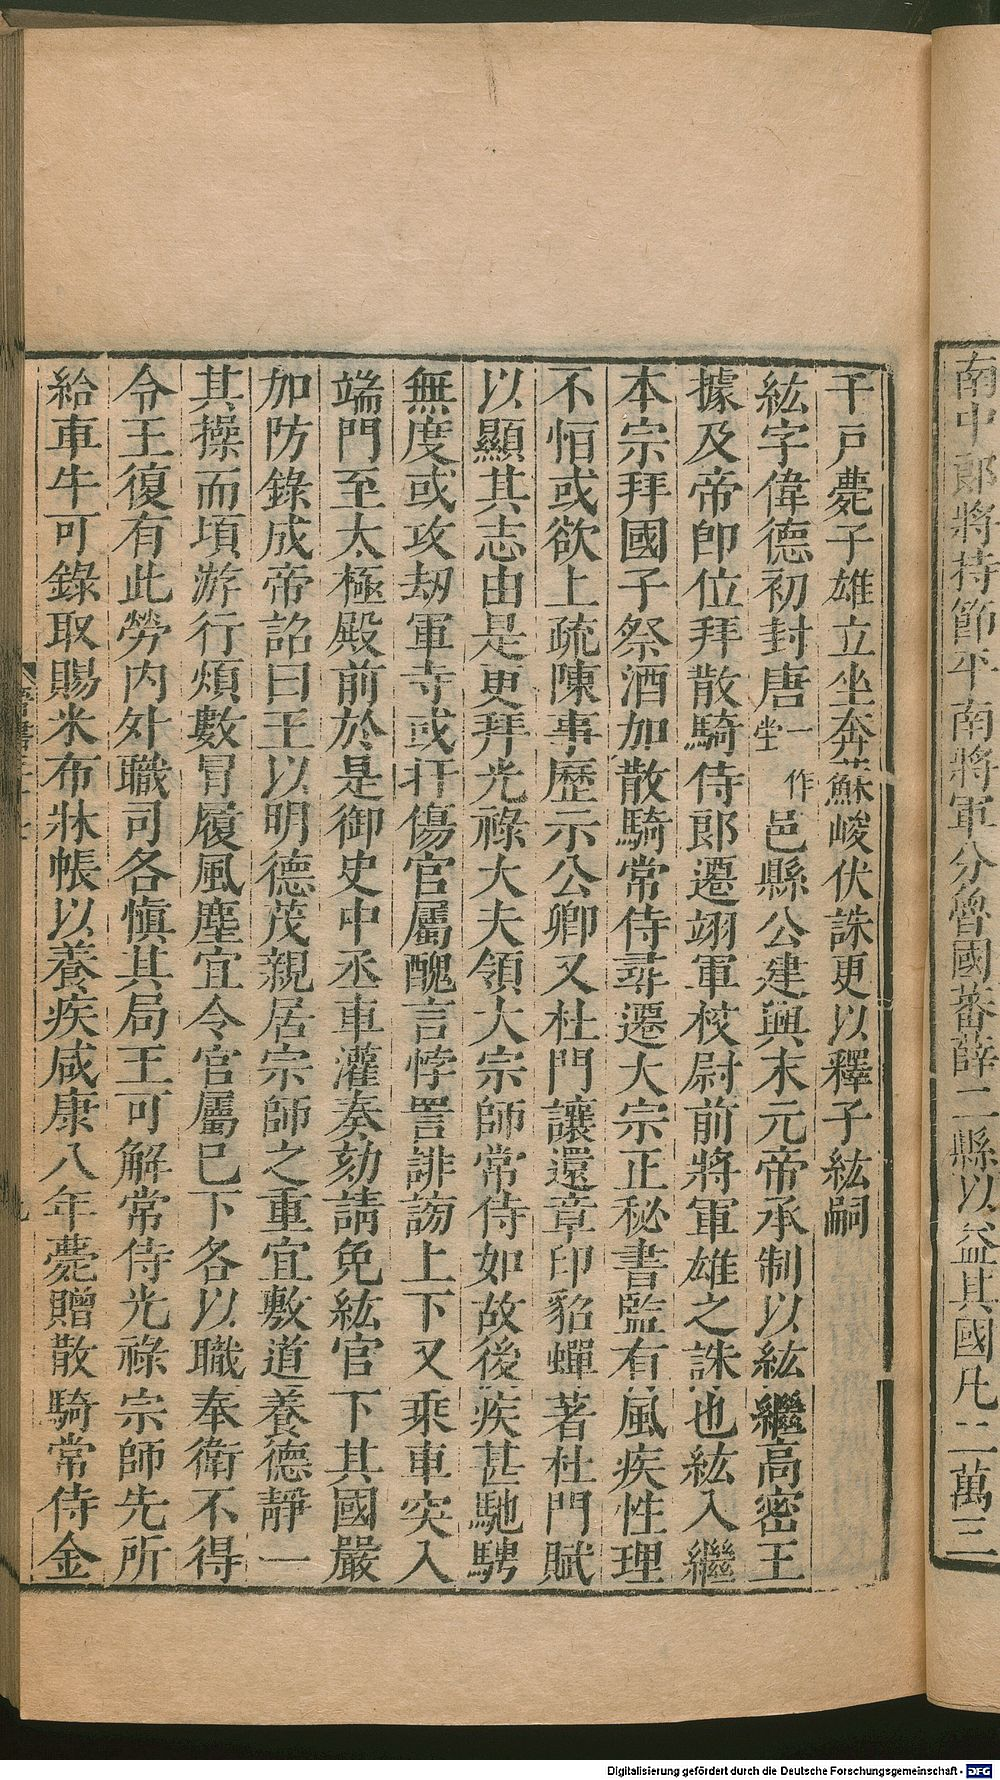 南中郎將持節平南將軍分魯國蕃薛二縣以益其國凡二萬三
千戸薨子雄立坐奔蘇峻伏誅更以釋子紘嗣
紘字偉德初封唐一作坐邑縣公建興末元帝承制以紘繼高密王
據及帝卽位拜散騎侍郎遷翊軍校尉前將軍雄之誅也紘入繼
本宗拜國子祭酒加散騎常侍尋遷大宗正秘書監有風疾性理
不恒或欲上疏陳事歷示公卿又杜門讓還章印貂蟬著杜門賦
以顯其志由是更拜光祿大夫領大宗師常侍如故後疾甚馳騁
無度或攻刼軍寺或扞傷官屬醜言悖詈誹謗上下又乘車突入
端門至太極殿前於是御史中丞車灌奏劾請免紘官下其國嚴
加防錄成帝詔曰王以明德茂親居宗師之重宜敷道養德靜一
其操而頃游行煩數冒履風塵宜令官屬已下各以職奉衛不得
令王復有此勞內外職司各愼其局王可解常侍光祿宗師先所
給車牛可錄取賜米布牀帳以養疾咸康八年薨贈散騎常侍金
Digitalisierung gefördert durch die Deutsche Forschungsgemeinschaft - DFG